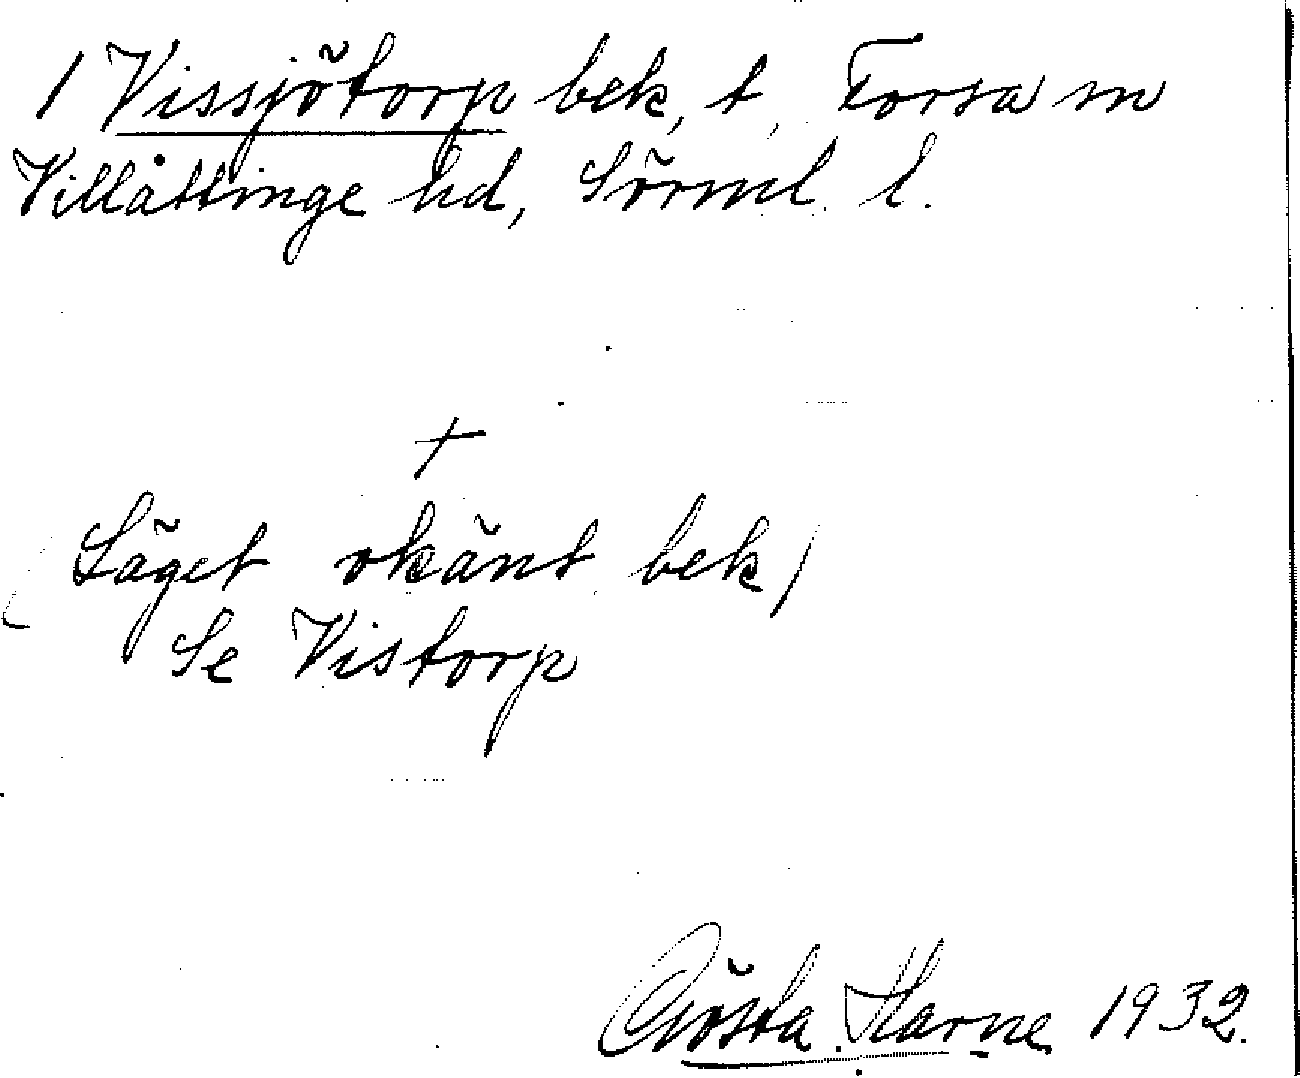 1 Vissjötorp bek, t, Forssa sn
Villåttinge hd, Sörml. l.
+
(Läget okänt bek)
Se Vistorp
Gösta Harne 1932.